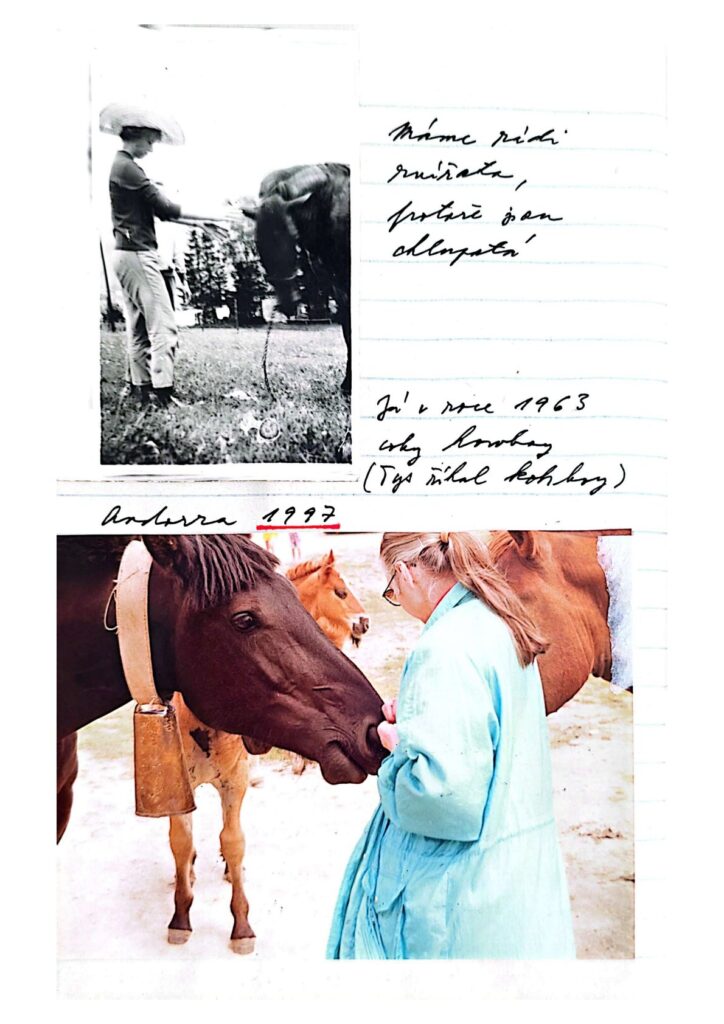 Máme rádi
zvířata,
protože jsou
chlupatá
Já v roce 1963
coby kowboy
(Tys říkal kohboy)
Andorra 1997